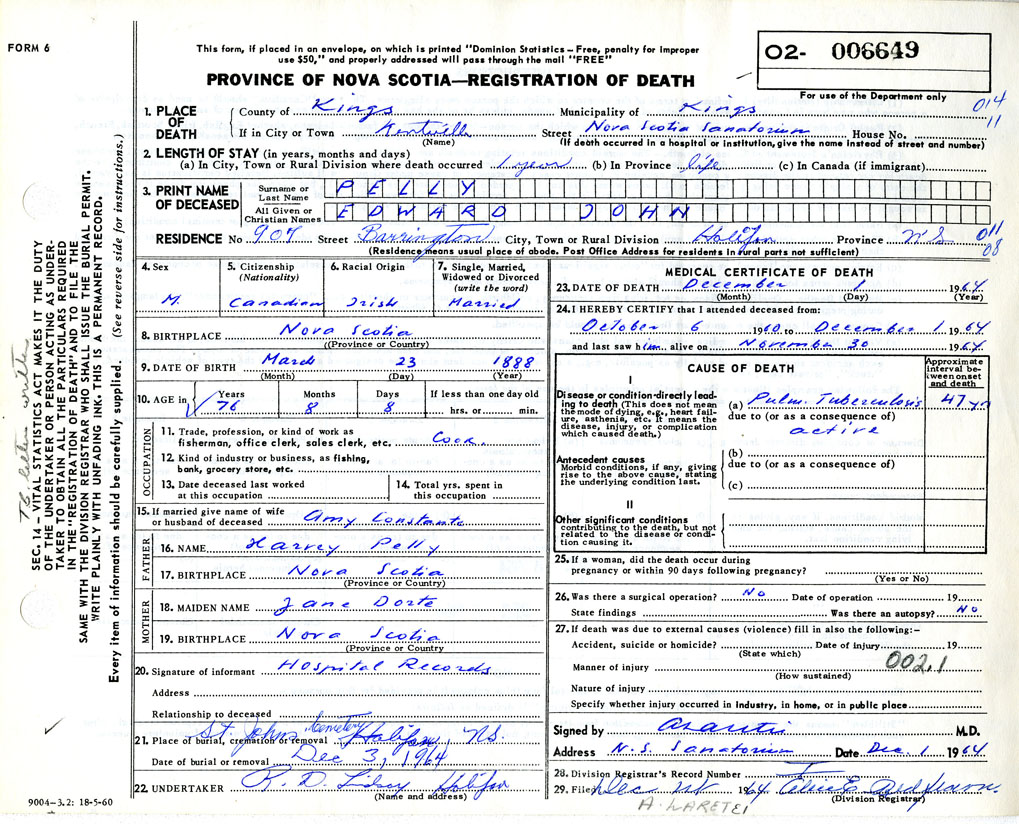 FORM 6
This form, if placed in an envelope, on which is printed "Dominion Statistics – Free, penalty for improper
use $50," and properly addressed will pass through the mail "FREE"
PROVINCE OF NOVA SCOTIA—REGISTRATION OF DEATH
O2- 006649
For use of the Department only
014
11
1. PLACE OF DEATH
County of Kings Municipality of Kings
If in City or Town Kentville Street Nova Scotia Sanatorium House No.
(Name) (If death occurred in a hospital or institution, give the name instead of street and number)
2. LENGTH OF STAY (in years, months and days)
(a) In City, Town or Rural Division where death occurred 1 year (b) In Province life (c) In Canada (if immigrant)
3. PRINT NAME OF DECEASED
Surname or Last Name PELLY
All Given or Christian Names EDWARD JOHN
RESIDENCE No 907 Street Barrington City, Town or Rural Division Halifax Province N S
011
08
(Residence means usual place of abode. Post Office Address for residents in rural parts not sufficient)
4. Sex M.
5. Citizenship (Nationality) Canadian
6. Racial Origin Irish
7. Single, Married, Widowed or Divorced (write the word) Married
8. BIRTHPLACE Nova Scotia
((Province or Country)
9. DATE OF BIRTH March 23 1888
(Month) (Day) (Year)
10. AGE in Years 76 Months 8 Days 8 If less than one day old hrs. or min.
OCCUPATION
11. Trade, profession, or kind of work as fisherman, office clerk, sales clerk, etc. Cook
12. Kind of industry or business, as fishing, bank, grocery store, etc.
13. Date deceased last worked at this occupation
14. Total yrs. spent in this occupation
15. If married give name of wife or husband of deceased Amy Constante
FATHER
16. NAME Harvey Pelly
17. BIRTHPLACE Nova Scotia
(Province or Country)
MOTHER
18. MAIDEN NAME Jane Dorte
19. BIRTHPLACE Nova Scotia
(Province or Country
20. Signature of informant Hospital Records
Address
Relationship to deceased
21. Place of burial, cremation or removal St. Johns Cemetery Halifax, NS.
Date of burial or removal Dec 3, 1964
22. UNDERTAKER R. D. Lindsay Halifax
(Name and address)
9004–3.2: 18-5-60
MEDICAL CERTIFICATE OF DEATH
23. DATE OF DEATH December 1 1964
(Month) (Day) (Year)
24. I HEREBY CERTIFY that I attended deceased from:
October 6 1960 to December 1 1964
and last saw him alive on November 30 1964
CAUSE OF DEATH
Approximate interval between onset and death
I
Disease or condition directly leading to death (This does not mean the mode of dying, e.g., heart failure, asthenia, etc. It means the disease, injury, or complication which caused death.)
(a) Pulm. Tuberculosis 47 yr
due to (or as a consequence of)
active
Antecedent causes
Morbid conditions, if any, giving rise to the above cause, stating the underlying condition last.
(b)
due to (or as a consequence of)
(c)
II
Other significant conditions
contributing to the death, but not related to the disease or condition causing it.
25. If a woman, did the death occur during
pregnancy or within 90 days following pregnancy?
(Yes or No)
26. Was there a surgical operation? No Date of operation 19
State findings Was there an autopsy? No
27. If death was due to external causes (violence) fill in also the following:–
Accident, suicide or homicide? Date of injury 19
(State which)
002.1
Manner of injury
(How sustained)
Nature of injury
Specify whether injury occurred in industry, in home, or in public place
Signed by M.D.
Address N. S. Sanatorium Date Dec. 1 1964
28. Division Registrar's Record Number
29. Filed Dec 1964
(Division Registrar)
SEC. 14 – VITAL STATISTICS ACT MAKES IT THE DUTY
OF THE UNDERTAKER OR PERSON ACTING AS UNDER-
TAKER TO OBTAIN ALL THE PARTICULARS REQUIRED
IN THE "REGISTRATION OF DEATH" AND TO FILE THE
SAME WITH THE DIVISION REGISTRAR WHO SHALL ISSUE THE BURIAL PERMIT.
WRITE PLAINLY WITH UNFADING INK. THIS IS A PERMANENT RECORD.
Every item of information should be carefully supplied. (See reverse side for instructions.)
TB letter written